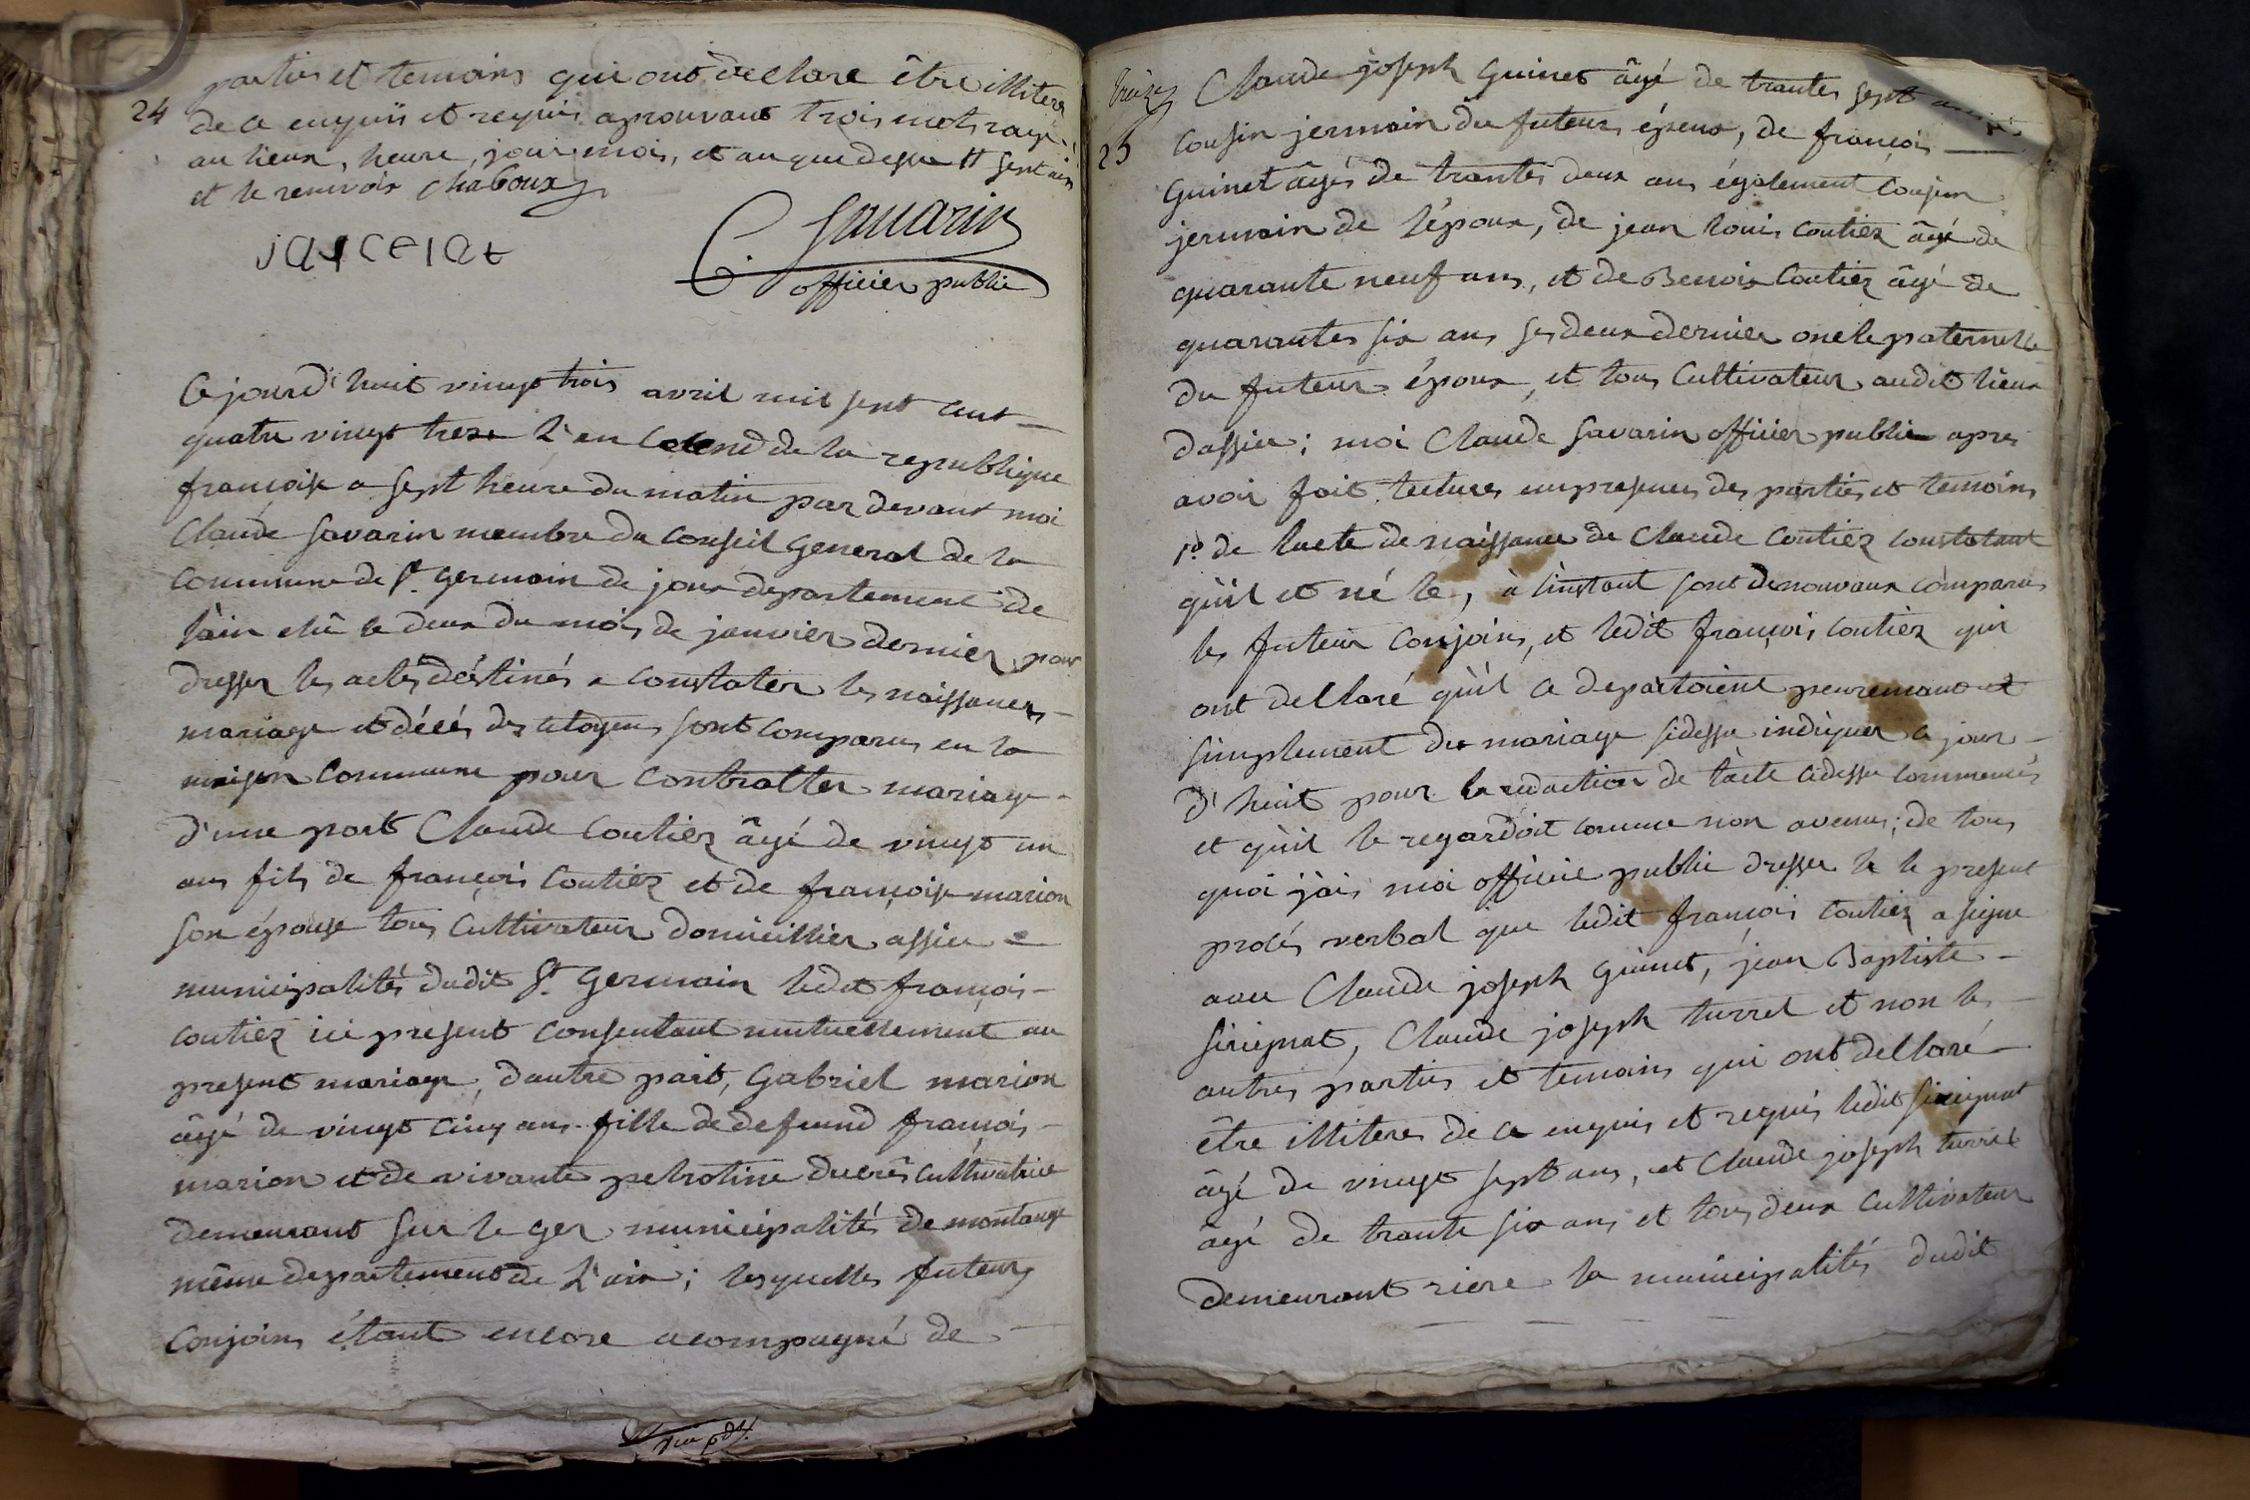 24
parties et temoins qui ont declare être illiteré
de ce enquis et requis aprouvant trois mots rayé,
au lieux, heure, jour mois, et an que dessu # sept ain
et le renvoix Chaboux
jascelat
C. Savarin
officier public
Cejourd'huit vingt trois avril mil sept cent
quatre vingt treze l'an second de la republique
françoise a sept heure du matin par devant moi
Claude Savarin membre du Conseil General de la
Commune de St. Germain de joux departement de
l'ain elû le deux du mois de janvier dernier, pour
dresser les actes déstinés a constater les naissances
mariage et décés des citoyens sont comparus en la
maison Commune pour contratter mariage
d'une part Claude Coutiez âgé de vingt un
ans fils de françois Coutiez et de françoise marion
son épouse tous Cultivateur domicillier assieu
municipalités dudit St. Germain ledit françois
coutiez ici present consentant mutuellement au
present mariage, d'autre part, Gabriel marion
âgé de vingt cinq ans fille de defeund françois
marion et de vivante petrotine ducrès cultivatrice
demeurant sur le ger municipalités de montange
même departement de l'ain; lesquelles futeurs
Conjoins étant encore acompagné de
vue pdt.
treize
25
Claude joseph Guinet âgé de trantes sept
Cousin jermain du futeur époux, de françois
Guinet âgés de trantes deux ans également Cousin
jermain de l'époux, de jean louis Coutiez âgé de
quarante neuf ans, et de Benoix Coutiez âgé de
quarantes six ans ses deux dernier oncle paternelle
du futeur époux, et tous Cultivateur audit lieux
dassieu; moi Claude Savarin officier public apres
avoir fait lectures enpresences des parties et temoins
1º de lacte de naissance de Claude Coutiez constatant
qu'il et né le, à l'instant sont denouvaux comparus
les futeur Conjoins, et ledit françois Coutiez qui
ont dellaré qu'il ce departoient peurement et
simplement du mariage sidessu indiquer a jour
d'huit pour la redaction de l'acte cidessu commencés
et qu'il le regardoit comme non avenus; de tous
quoi j'ais moi officie public dresser le le present
procés verbal que ledit françois Coutiez a signe
avec Claude joseph Guinet, jean Baptiste
sirignat, Claude joseph turrel et non les
autres parties et temoins qui ont dellaré
être illiteres de ce enquis et requis ledit sirignat
âgé de vingt sept ans, et Claude joseph turrel
âgé de trante six ans et tous deux Cultivateur
demeurant riere la municipalités dudit